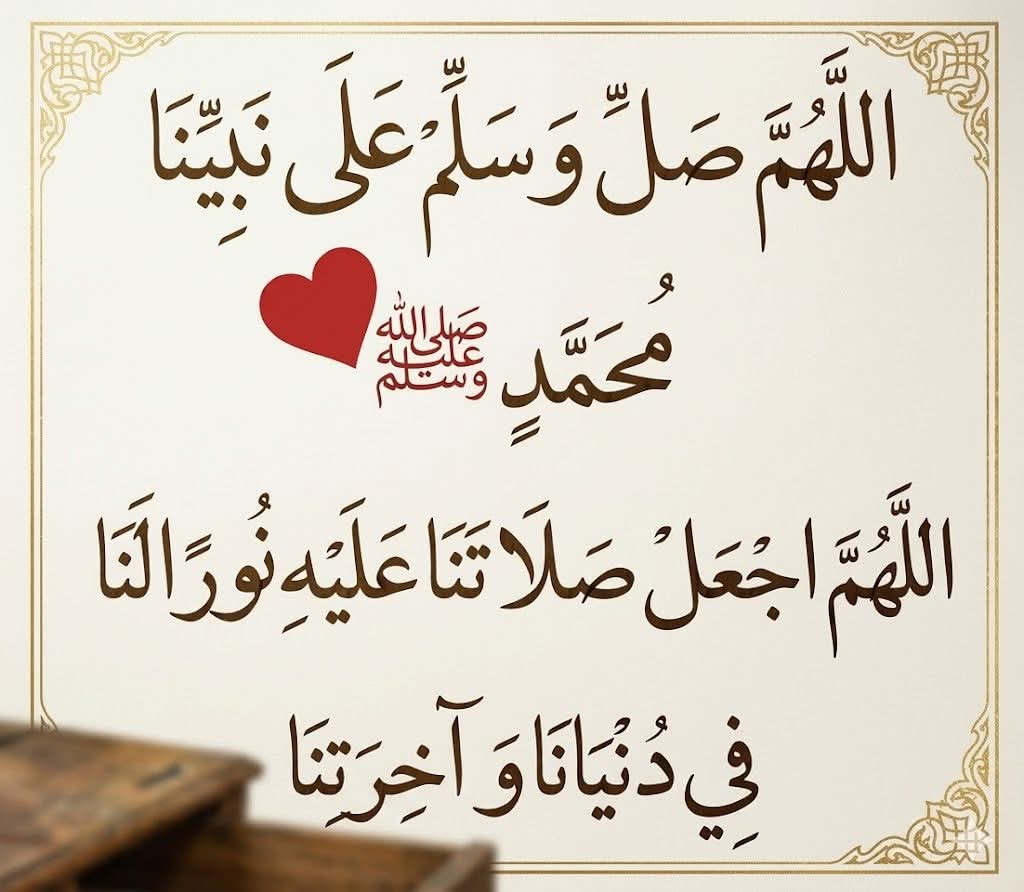 اللَّهُمَّ صَلِّ وَسَلِّمْ عَلَى نَبِيِّنَا
مُحَمَّدٍ صلى الله عليه وسلم
اللَّهُمَّ اجْعَلْ صَلَاتَنَا عَلَيْهِ نُورًا لَنَا
فِي دُنْيَانَا وَآخِرَتِنَا